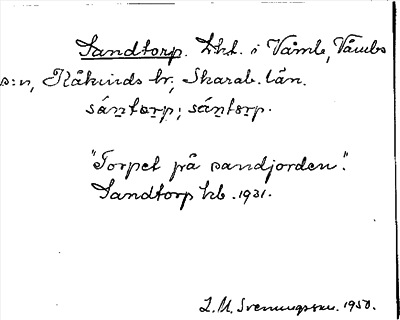 Sandtorp. Lht. i Våmb, Våmbs
s:n, Kåkinds hr, Skarab. län.
sántòrp; sántòrp.
"Torpet på sandjorden".
Sandtorp hb. 1931.
L. M. Svenungsson. 1950.